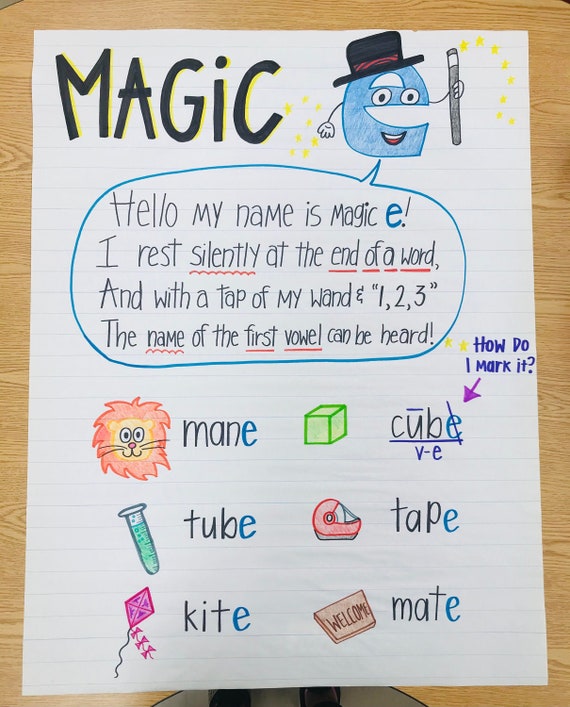 MAGiC e
Hello my name is magic e!
I rest silently at the end of a word,
And with a tap of my wand & "1,2,3"
The name of the first vowel can be heard!
How Do
I mark it?
mane
cūbe
v-e
tube
tape
kite
WELCOME
mate